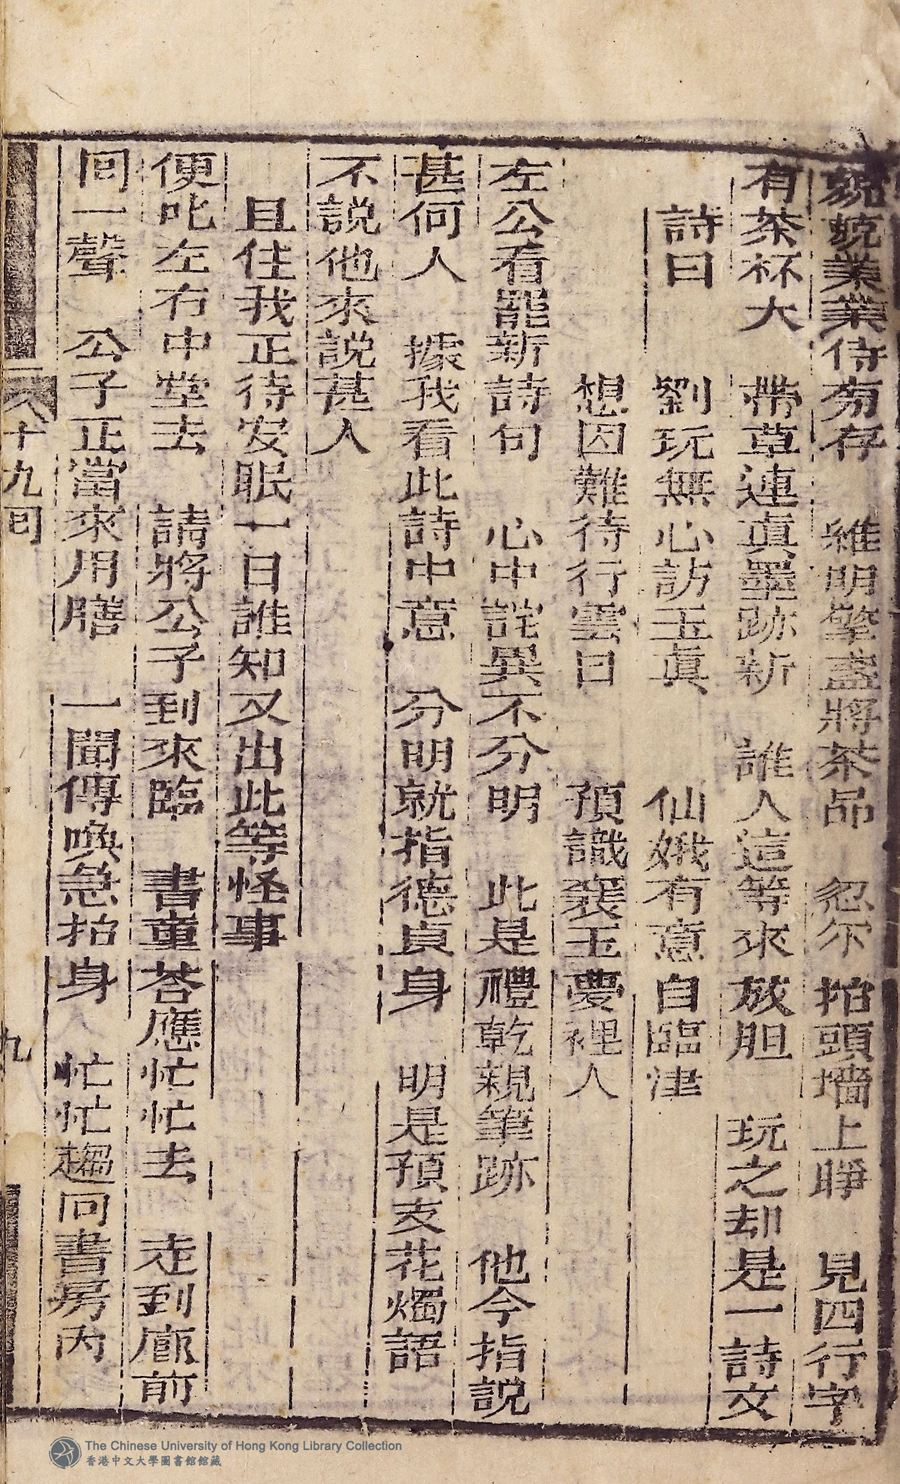 兢兢業業待夯存　維明擎盞將茶品　忽尓抬頭墻上睜　見四行字
有茶杯大　帶草連真墨跡新　誰人這等來放胆　玩之却是一詩文
詩曰　劉玩無心訪玉真　仙娥有意自臨津
想因難待行雲日　預識襄王夢裡人
左公看罷新詩句　心中詫異不分明　此是禮乾親筆跡　他今指說
甚何人　據我看此詩中意　分明就指德貞身　明是預支花燭語
不說他來說甚人
且住我正待安眠一日誰知又出此等怪事
便叱左右中堂去　請將公子到來臨　書童荅應忙忙去　走到廊前
囘一聲　公子正當來用膳　一聞傳喚急抬身　忙忙趨向書房內
八十九囘
九
The Chinese University of Hong Kong Library Collection
香港中文大學圖書館館藏